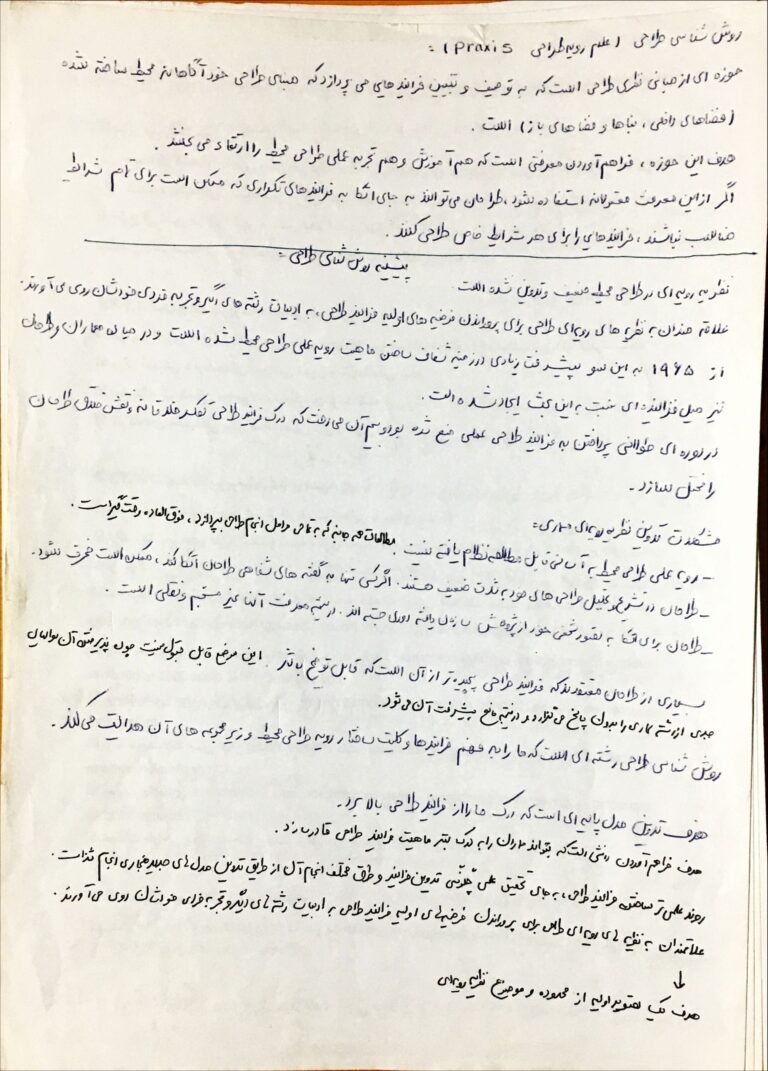 روش شناسی طراحی (علم رویه طراحی Praxis) :
حوزه ای از مبانی نظری طراحی است که به توصیف و تبیین فرایندهایی می پردازد که مبنای طراحی خودآگاهانه محیط ساخته شده
(فضاهای داخلی ، بناها و فضاهای باز) است .
هدف این حوزه ، فراهم آوردن معرفتی است که هم آموزش و هم تجربه عملی طراحی محیط را ارتقاء می بخشد .
اگر از این معرفت معقولانه استفاده شود ، طراحان می توانند به جای اتکا به فرایندهای تکراری که ممکن است برای تمام شرایط
مناسب نباشند ، فرایندهایی را برای هر شرایط خاص طراحی کنند .
پیشینه روش شناسی طراحی :
نظریه رویه ای در طراحی محیط ضعیف و تدوین شده است
علاقه مندان به نظریه های رویه ای طراحی برای پروراندن فرضیه های اولیه فرایند طراحی ، به ادبیات رشته های دیگر و تجربه فردی خودشان روی می آورند .
از ۱۹۶۵ به این سو پیشرفت زیادی در زمینه شفاف ساختن ماهیت رویه عملی طراحی محیط شده است و در میان معماران و طراحان
نیز میل فزاینده ای نسبت به این بحث ایجاد شده است .
در دوره ای طولانی پرداختن به فرایند طراحی عملی منع شده بود و بیم آن می رفت که درک فرایند طراحی تفکر خلاقانه و نقش خلاق طراحان
را مختل سازد .
مشکلات تدوین نظریه رویه ای معماری :
- رویه عملی طراحی محیط به آسانی قابل مطالعه نظام یافته نیست . مطالعات همه جانبه که به تمامی مراحل انجام طراحی بپردازد ، فوق العاده وقت گیر است .
- طراحان در تشریح و تحلیل طراحی های خود به شدت ضعیف هستند . اگر کسی تنها به گفته های شفاهی طراحان اتکا کند ، ممکن است منحرف شود .
- طراحان برای اتکا به تصور شخصی خود از پژوهش سازمان یافته دوری جسته اند . در نتیجه معرفت آنها غیر مستقیم و نقلی است .
بسیاری از طراحان معتقدند که فرایند طراحی پیچیده تر از آن است که قابل توضیح باشد . این موضع قابل قبول نیست چون پذیرفتن آن سوالهای
جدی از رشته معماری را بدون پاسخ می گذارد و در نتیجه مانع پیشرفت آن می شود .
روش شناسی طراحی رشته ای است که ما را به فهم فرایندها و کلیت ساختار رویه طراحی محیط و زیرمجموعه های آن هدایت می کند .
هدف تدوین مدل پایه ای است که درک ما را از فرایند طراحی بالا ببرد .
هدف فراهم آوردن روشی است که بتواند معماران را به درک بهتر ماهیت فرایند طراحی قادر سازد .
روند علمی تر ساختن فرایند طراحی ، به جای تحقیق علمی چگونگی تدوین فرایند و طرق مختلف انجام آن از طریق تدوین مدل های جدید هنجاری انجام شده است .
علاقمندان به نظریه های رویه ای طراحی برای پروراندن فرضیه های اولیه فرایند طراحی به ادبیات رشته های دیگر و تجربه فردی خودشان روی می آورند .
↓
هدف یک تصویر اولیه از محدوده و موضوع نظریه رویه ای